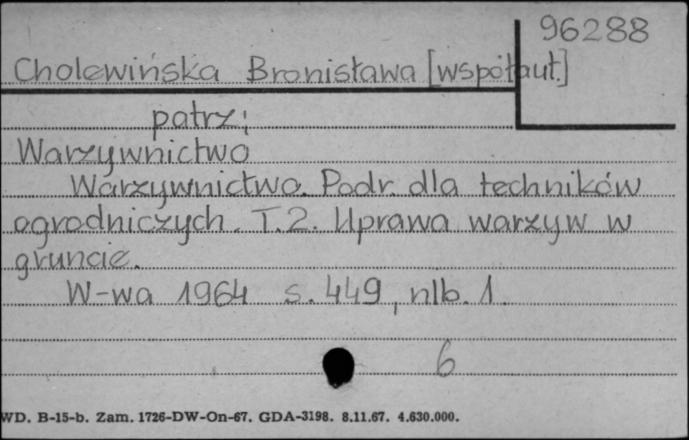 96288
Cholewińska Bronisława [współaut.]
patrz;
Warzywnictwo
Warzywnictwo. Podr. dla techników
ogrodniczych. T.2. Uprawa warzyw w
gruncie.
W-wa 1964 s. 449, nlb. 1.
6
WD. B-15-b. Zam. 1726-DW-On-67. GDA-3198. 8.11.67. 4.630.000.